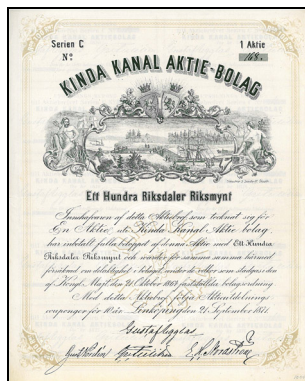 Serien C
1 Aktie
Nº
168.
KINDA KANAL AKTIE-BOLAG
Ett Hundra Riksdaler Riksmynt
Innehafvaren af detta Aktiebref, som tecknat sig för
En Aktie uti Kinda Kanal Aktie bolag,
har inbetalt fulla beloppet af denna Aktie med Ett Hundra
Riksdaler Riksmynt och warder för samma summa härmed
försäkrad om delaktighet i bolaget, under de vilkor som stadgas i den
af Kongl. Majt. den 21 October 1869 fastställda bolagsordning.
Med detta Aktiebref följa Aktieutdelnings
couponger för 10 år. Linköping den 21 September 1871.